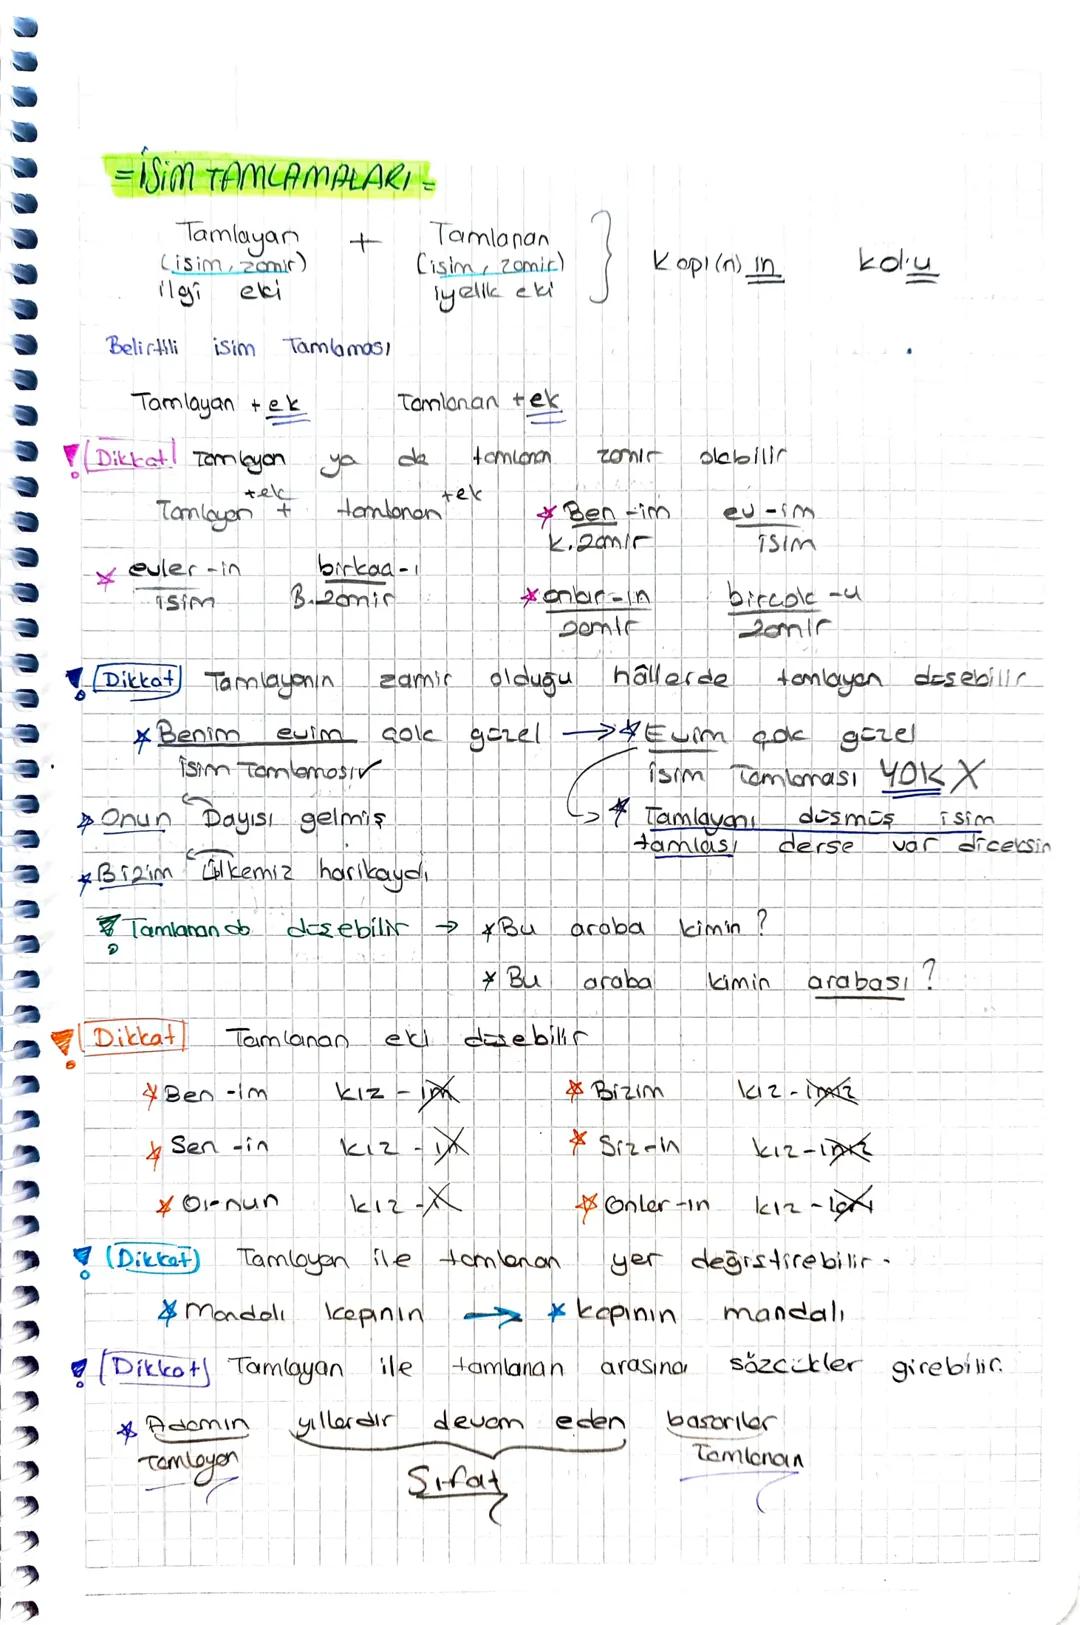 =İSİM TAMLAMALARI=
Tamlayan + Tamlanan
(isim, zamir) (isim, zamir) } Kapı(n) ın kol-u
ilgi eki iyelik eki
Belirtili isim Tamlaması
Tamlayan + ek Tamlanan + ek
! Dikkat! Tamlayan ya da tamlanan zamir olabilir
Tamlayan +ek + tamlanan +ek * Ben -im ev -im
K.zamir isim
* evler -in birkaç-ı
isim B.zamir
* onlar-ın birçok -u
zamir zamir
! Dikkat Tamlayanın zamir olduğu hâllerde tamlayan düşebilir
* Benim evim çok güzel → * Evim çok güzel
isim Tamlaması✓ isim Tamlaması YOK X
* Onun Dayısı gelmiş * Tamlayanı düşmüş isim
tamlası derse var diceksin
* Bizim ülkemiz harikaydı
! Tamlanan da düşebilir → * Bu araba kimin ?
* Bu araba kimin arabası ?
! Dikkat Tamlanan eki düşebilir
* Ben -im kız -ım * Bizim kız-ımız
* Sen -in kız -ın * Siz-in kız-ınız
* O-nun kız -X * Onlar -ın kız -ları
! (Dikkat) Tamlayan ile tamlanan yer değiştirebilir.
* Mandalı kapının → * kapının mandalı
! Dikkat Tamlayan ile tamlanan arasına sözcükler girebilir.
* Adamın yıllardır devam eden başarılar
Tamlayan Sıfat Tamlanan